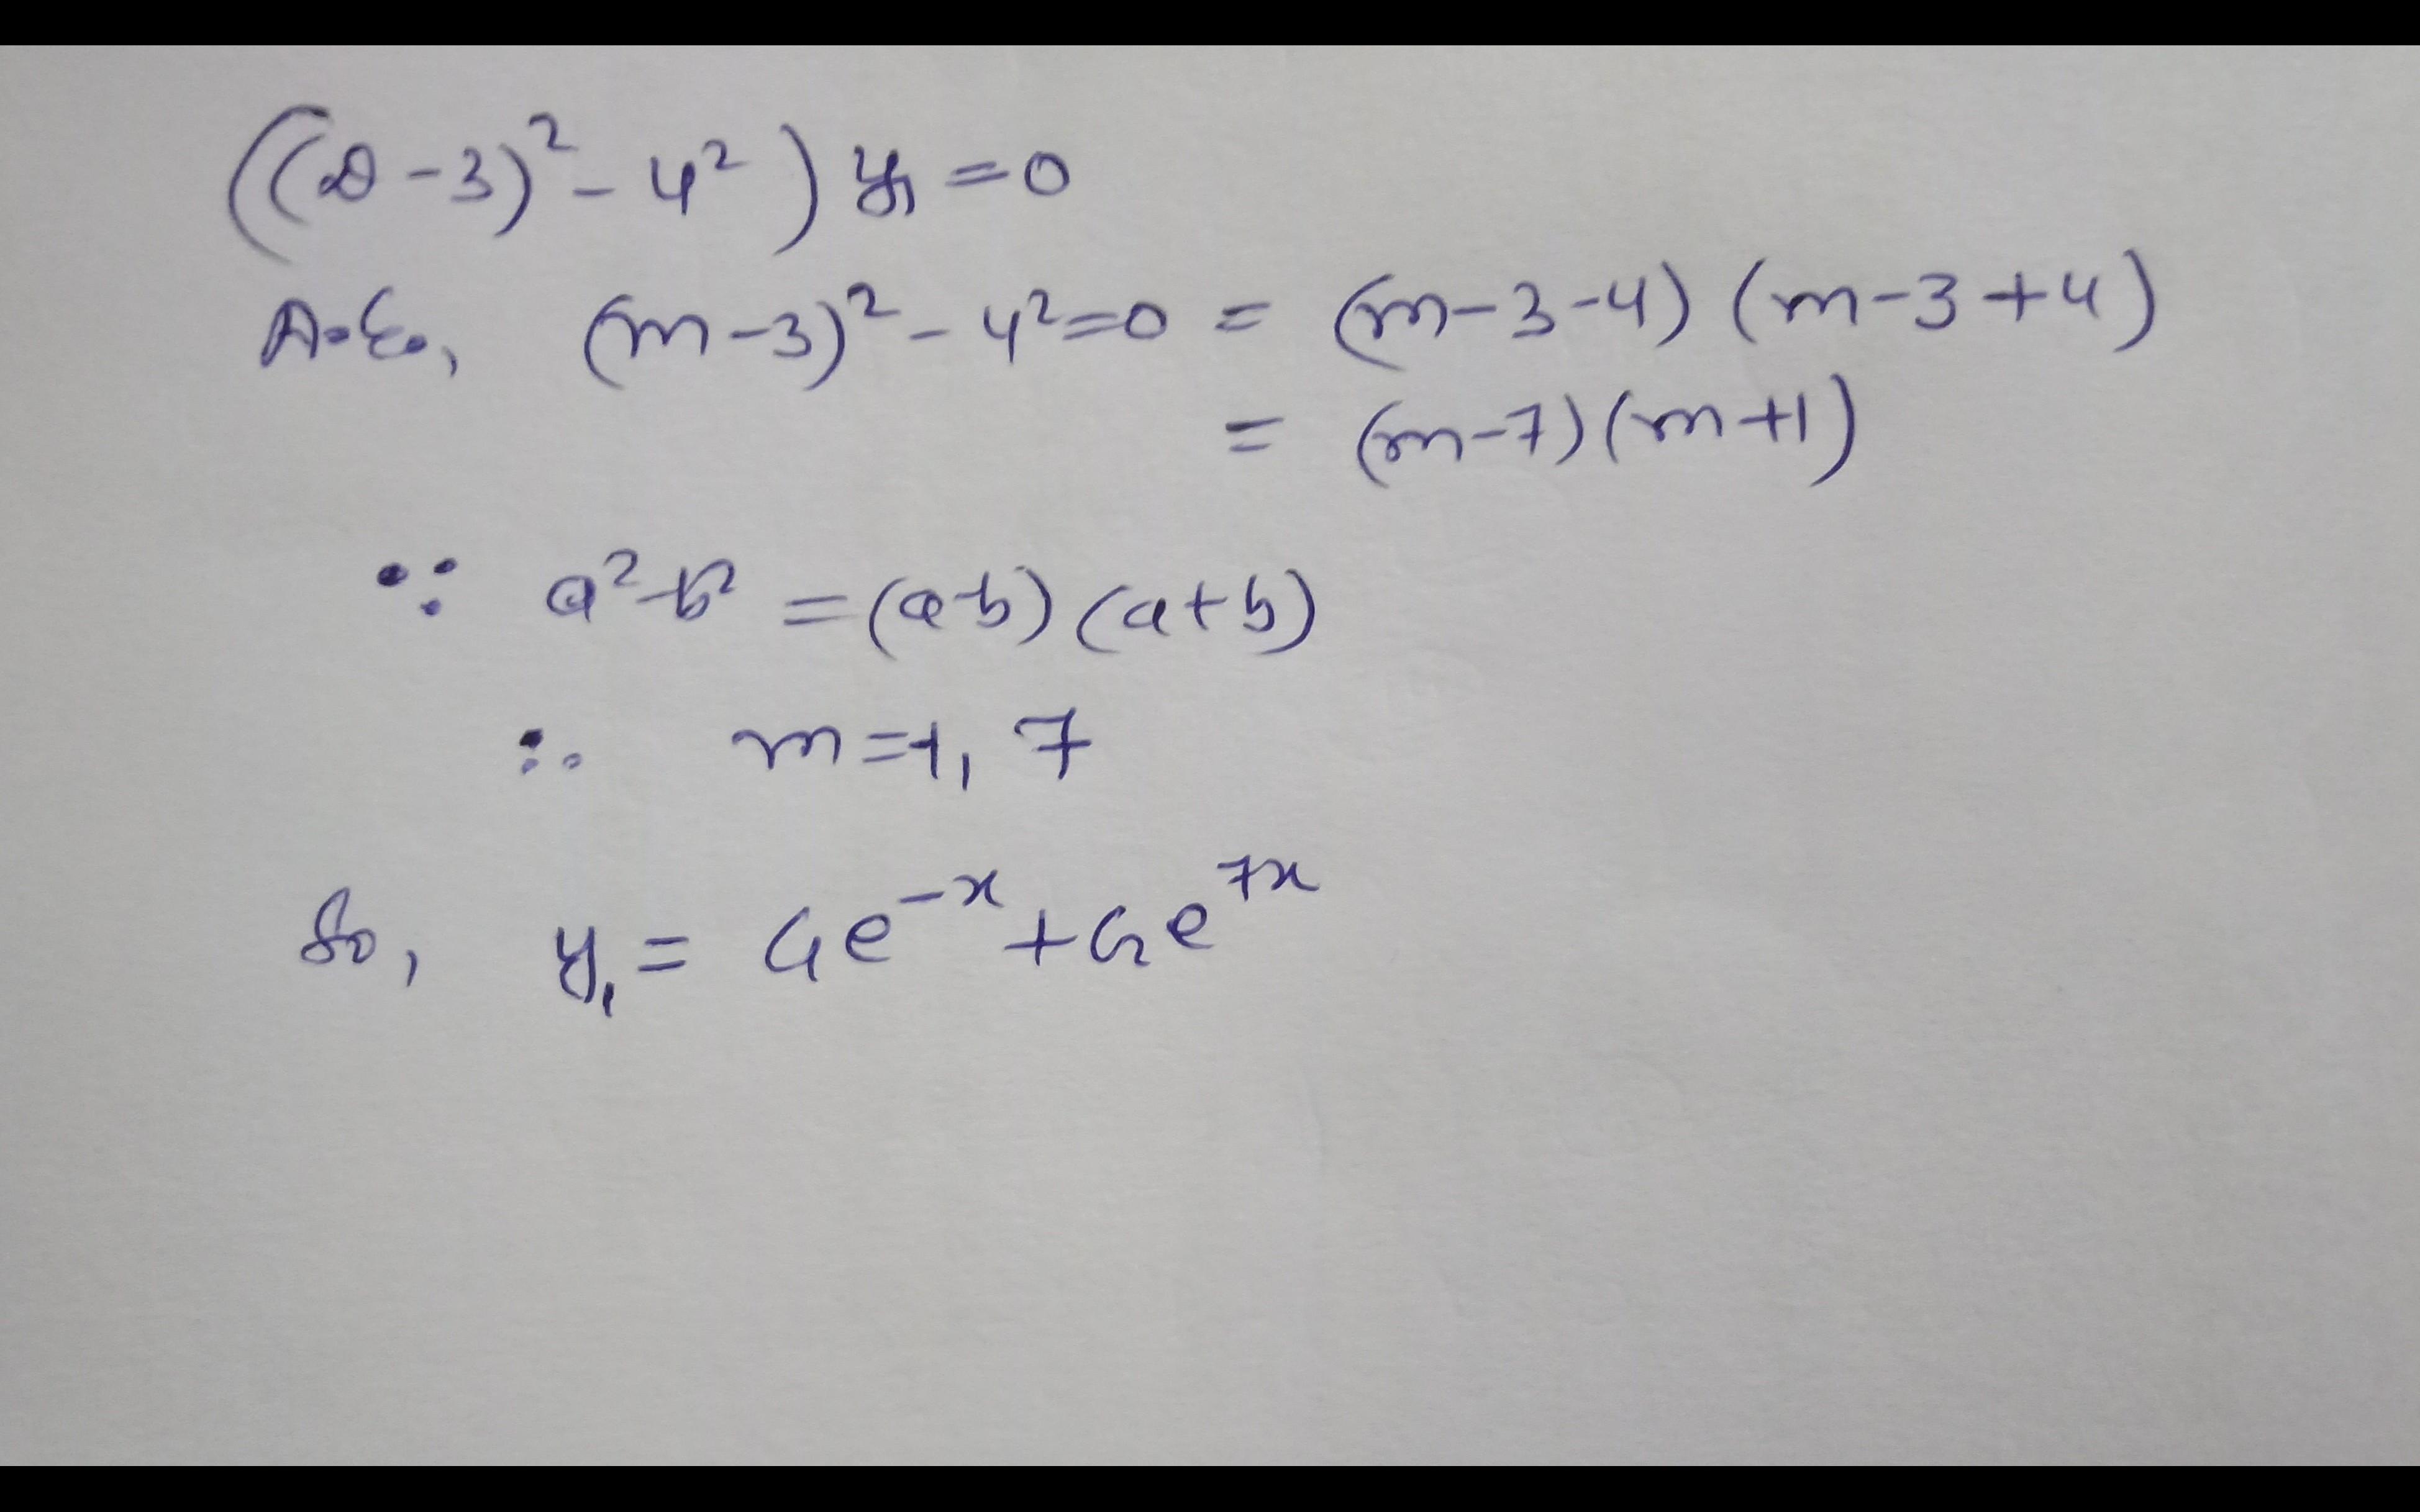 ((D-3)² - 4²) y₁ = 0
A.E., (m-3)² - 4² = 0 = (m-3-4) (m-3+4)
= (m-7)(m+1)
∵ a²-b² = (a-b) (a+b)
∴ m = -1, 7
So, y₁ = C₁e⁻ˣ + C₂e⁷ˣ